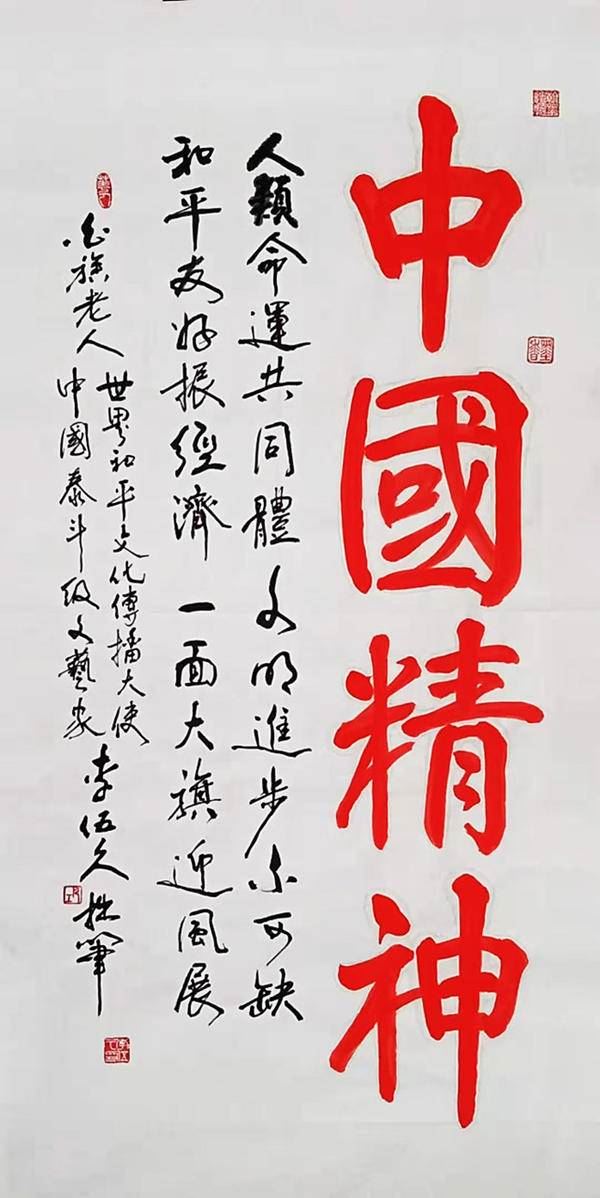 中國精神
人類命運共同體 文明進步不可缺
和平友好振經濟 一面大旗迎風展
世界和平文化傳播大使
白族老人 中國泰斗级文藝家
李伍久 拙筆